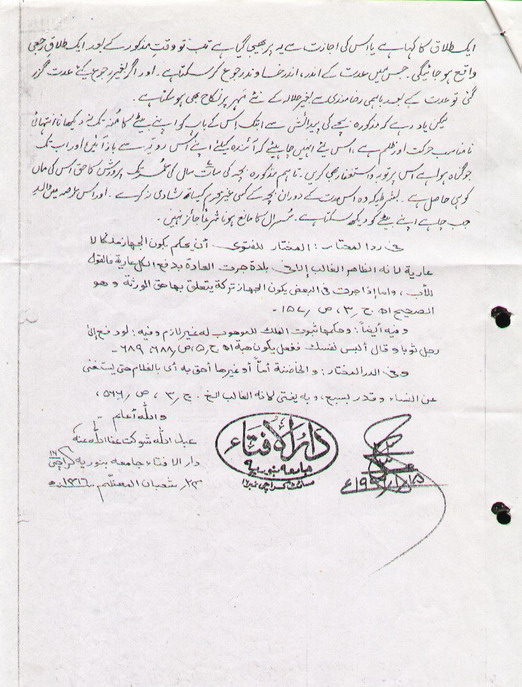 ایک طلاق کا کہا ہے یا اس کی اجازت سے یہ پرچہ بھیجا گیا ہے تب تو وقتِ مذکور کے بعد ایک طلاق رجعی
واقع ہو جائیگی۔ جس میں عدت کے اندر، اندر خاوند رجوع کر سکتا ہے۔ اور اگر بغیر رجوع کیے عدت گزر
گئی تو عدت کے بعد باہمی رضامندی سے بغیر حلالہ کے نئے مہر پر نکاح بھی ہو سکتا ہے۔
لیکن یاد رہے کہ مذکورہ بچے کی پیدائش سے ابتک اس کے باپ کو اپنے بیٹے کا منہ تک نہ دیکھانا انتہائی
نامناسب حرکت اور ظلم ہے۔ اس لئے انہیں چاہیئے کہ آئندہ کیلئے اپنے اس رویئے سے باز آئیں اور اب تک
جو گناہ ہوا ہے اس پر توبہ و استغفار بھی کریں۔ تاہم مذکورہ بچہ کی سات سال کی عمر تک پرورش کا حق اس کی ماں
کو ہی حاصل ہے۔ بشرطیکہ وہ اس مدت کے دوران بچہ کے کسی غیر محرم کیساتھ شادی نہ کرے۔ اور اس عرصہ میں والد
جب چاہے اپنے بیٹے کو دیکھ سکتا ہے۔ سسرال کا مانع ہونا شرعاً جائز نہیں۔
فی رد المحتار: المختار للفتوی أن یحکم بکون الجهاز ملکا لا
عاریة لانه الظاهر الغالب إلا فی بلدة جرت العادة بدفع الکل عاریة فالقول
للأب، واما إذا جرت فی البعض یکون الجهاز ترکة یتعلق بها حق الورثة و هو
الصحیح اھ ج ۳، ص ۱۵۷۔
وفیه أیضاً: وحکمها ثبوت الملک للموهوب له غیر لازم وفیه: لو دفع إلی
رجل ثوبا و قال ألبس نفسک ففعل یکون هبة اھ ج ۵، ص ۶۸۸، ۶۸۹
وفی الدر المختار: والحاضنة أماً أو غیرها أحق به أی بالغلام حتی یستغنی
عن النساء وقدر بسبع، وبه یفتی لانه الغالب الخ۔ ج ۳، ص ۵۶۶
والله أعلم۔
عبد اللہ شوکت عفا اللہ عنہ
دار الافتاء جامعہ بنوریہ کراچی ۱۶
۲۳ شعبان المعظم ۱۴۱۶ھ
دار الافتاء
جامعہ بنوریہ
سائٹ کراچی نمبر ۱۶